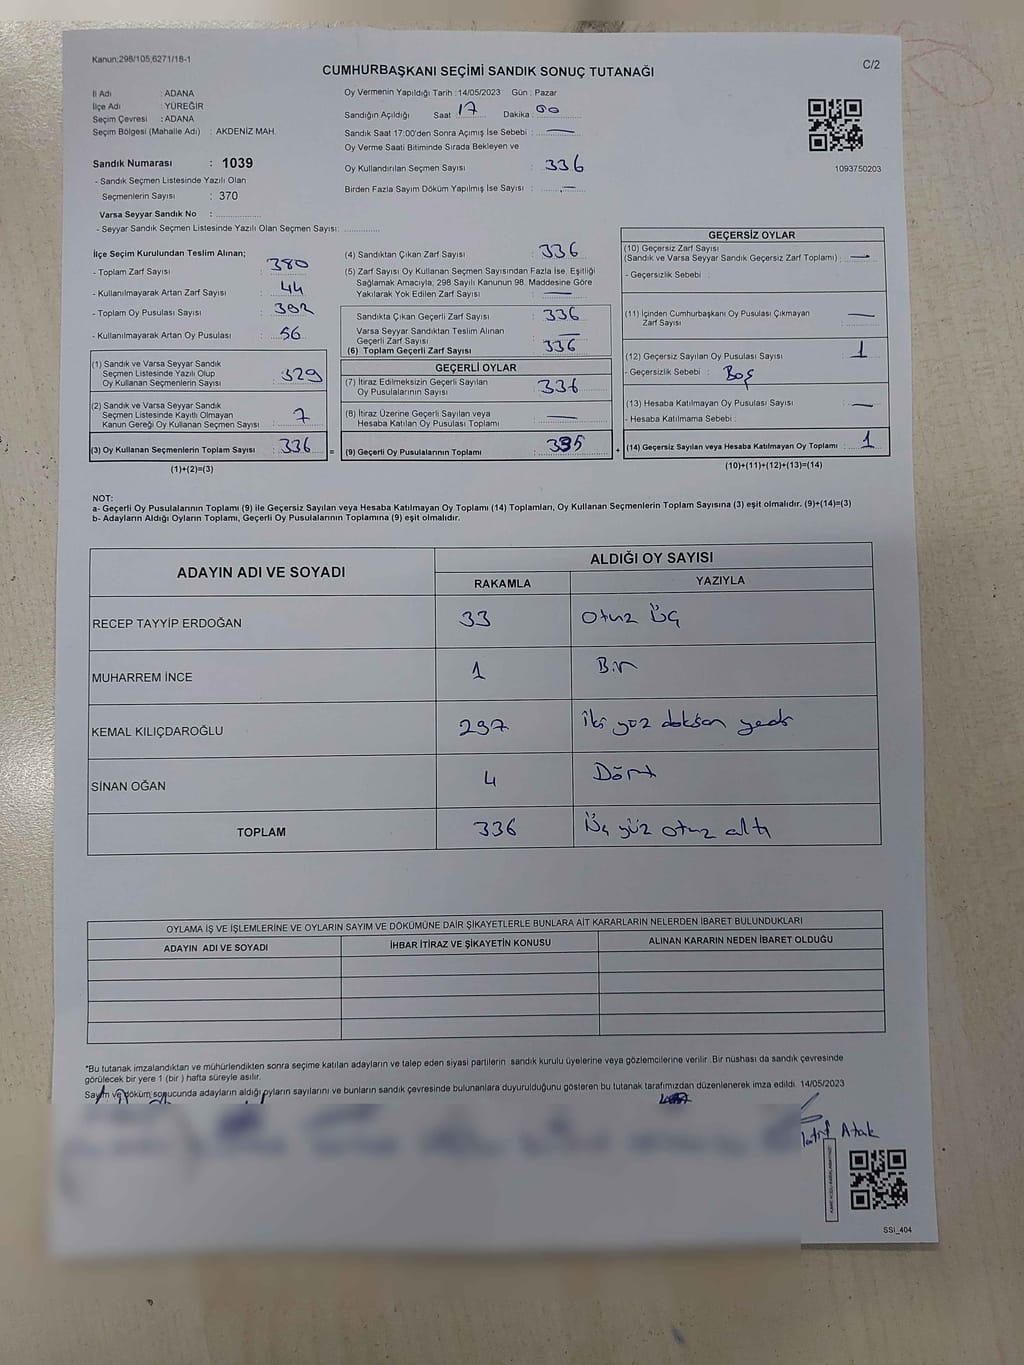 Kanun:298/105,6271/18-1
C/2
CUMHURBAŞKANI SEÇİMİ SANDIK SONUÇ TUTANAĞI
İl Adı : ADANA
İlçe Adı : YÜREĞİR
Seçim Çevresi : ADANA
Seçim Bölgesi (Mahalle Adı) : AKDENİZ MAH.
Sandık Numarası : 1039
- Sandık Seçmen Listesinde Yazılı Olan
Seçmenlerin Sayısı : 370
Varsa Seyyar Sandık No :
- Seyyar Sandık Seçmen Listesinde Yazılı Olan Seçmen Sayısı:
Oy Vermenin Yapıldığı Tarih :14/05/2023 Gün : Pazar
Sandığın Açıldığı Saat 17 Dakika : 00
Sandık Saat 17:00'den Sonra Açımış İse Sebebi : —
Oy Verme Saati Bitiminde Sırada Bekleyen ve
Oy Kullandırılan Seçmen Sayısı : 336
Birden Fazla Sayım Döküm Yapılmış İse Sayısı : —
1093750203
İlçe Seçim Kurulundan Teslim Alınan;
- Toplam Zarf Sayısı : 380
- Kullanılmayarak Artan Zarf Sayısı : 44
- Toplam Oy Pusulası Sayısı : 392
- Kullanılmayarak Artan Oy Pusulası : 56
(1) Sandık ve Varsa Seyyar Sandık
Seçmen Listesinde Yazılı Olup
Oy Kullanan Seçmenlerin Sayısı : 329
(2) Sandık ve Varsa Seyyar Sandık
Seçmen Listesinde Kayıtlı Olmayan
Kanun Gereği Oy Kullanan Seçmen Sayısı : 7
(3) Oy Kullanan Seçmenlerin Toplam Sayısı : 336
(1)+(2)=(3)
=
(4) Sandıktan Çıkan Zarf Sayısı : 336
(5) Zarf Sayısı Oy Kullanan Seçmen Sayısından Fazla İse, Eşitliği
Sağlamak Amacıyla, 298 Sayılı Kanunun 98. Maddesine Göre
Yakılarak Yok Edilen Zarf Sayısı : —
Sandıkta Çıkan Geçerli Zarf Sayısı : 336
Varsa Seyyar Sandıktan Teslim Alınan
Geçerli Zarf Sayısı : —
(6) Toplam Geçerli Zarf Sayısı 336
GEÇERLİ OYLAR
(7) İtiraz Edilmeksizin Geçerli Sayılan
Oy Pusulalarının Sayısı : 336
(8) İtiraz Üzerine Geçerli Sayılan veya
Hesaba Katılan Oy Pusulası Toplamı : —
(9) Geçerli Oy Pusulalarının Toplamı : 335
+
GEÇERSİZ OYLAR
(10) Geçersiz Zarf Sayısı
(Sandık ve Varsa Seyyar Sandık Geçersiz Zarf Toplamı) : —
- Geçersizlik Sebebi :
(11) İçinden Cumhurbaşkanı Oy Pusulası Çıkmayan
Zarf Sayısı : —
(12) Geçersiz Sayılan Oy Pusulası Sayısı : 1
- Geçersizlik Sebebi : Boş
(13) Hesaba Katılmayan Oy Pusulası Sayısı : —
- Hesaba Katılmama Sebebi :
(14) Geçersiz Sayılan veya Hesaba Katılmayan Oy Toplamı : 1
(10)+(11)+(12)+(13)=(14)
NOT:
a- Geçerli Oy Pusulalarının Toplamı (9) ile Geçersiz Sayılan veya Hesaba Katılmayan Oy Toplamı (14) Toplamları, Oy Kullanan Seçmenlerin Toplam Sayısına (3) eşit olmalıdır. (9)+(14)=(3)
b- Adayların Aldığı Oyların Toplamı, Geçerli Oy Pusulalarının Toplamına (9) eşit olmalıdır.
ADAYIN ADI VE SOYADI ALDIĞI OY SAYISI
RAKAMLA YAZIYLA
RECEP TAYYİP ERDOĞAN 33 Otuz Üç
MUHARREM İNCE 1 Bir
KEMAL KILIÇDAROĞLU 297 İki yüz doksan yedi
SİNAN OĞAN 4 Dört
TOPLAM 336 Üç yüz otuz altı
OYLAMA İŞ VE İŞLEMLERİNE VE OYLARIN SAYIM VE DÖKÜMÜNE DAİR ŞİKAYETLERLE BUNLARA AİT KARARLARIN NELERDEN İBARET BULUNDUKLARI
ADAYIN ADI VE SOYADI İHBAR İTİRAZ VE ŞİKAYETİN KONUSU ALINAN KARARIN NEDEN İBARET OLDUĞU
*Bu tutanak imzalandıktan ve mühürlendikten sonra seçime katılan adayların ve talep eden siyasi partilerin sandık kurulu üyelerine veya gözlemcilerine verilir .Bir nüshası da sandık çevresinde
görülecek bir yere 1 (bir ) hafta süreyle asılır.
Sayım ve döküm sonucunda adayların aldığı oyların sayılarını ve bunların sandık çevresinde bulunanlara duyurulduğunu gösteren bu tutanak tarafımızdan düzenlenerek imza edildi. 14/05/2023
Atak
SSI_404